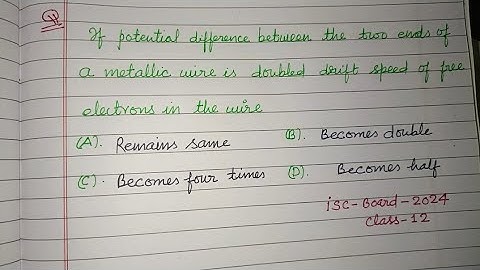 Q.
If potential difference between the two ends of
a metallic wire is doubled drift speed of free
electrons in the wire
(A). Remains same (B). Becomes double
(C). Becomes four times (D). Becomes half
iSC-Board-2024
Class-12